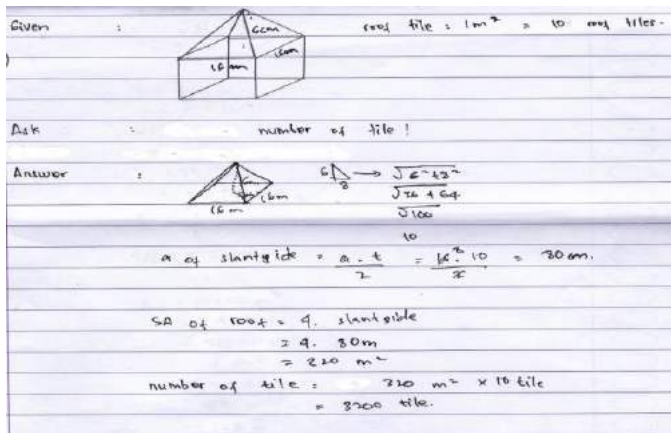 Given : roof tile : 1m² = 10 roof tiles.
)
6cm
16m
16 m
Ask : number of tile !
Answer :
6m
16m
16 m
6 8 → √6²+8²
√36 + 64
√100
10
a of slantside = a . t / 2 = 16 8 . 10 / 2 = 80 m.
SA of roof = 4. slantside
= 4. 80m
= 320 m²
number of tile = 320 m² × 10 tile
= 3200 tile.